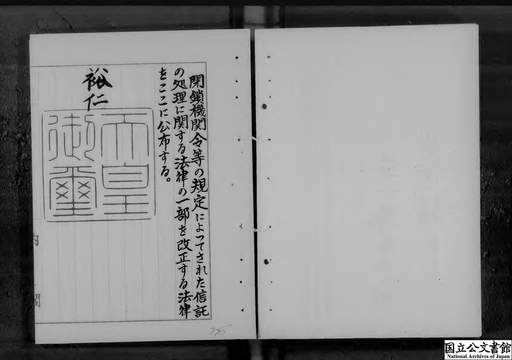 閉鎖機関令等の規定によつてされた信託
の処理に関する法律の一部を改正する法律
をここに公布する。
裕仁
天皇
御璽
国立公文書館
National Archives of Japan